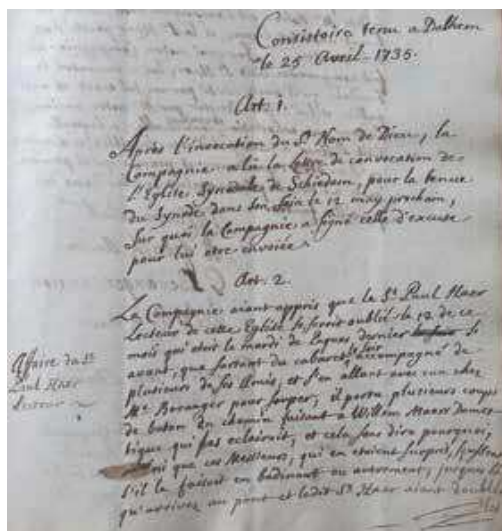 Consistoire tenu a Dalhem
le 25 Avril 1735.
Art. 1.
Après l'invocation du St Nom de Dieu, la
Compagnie a lu la Lettre de convocation de
l'Eglise Synodale de Schiedam, pour la tenue
du Synode dans son sein le 12 may prochain,
Sur quoi la Compagnie a signé celle d'excuse
pour lui etre envoiée.
Art. 2.
La Compagnie aiant appris que le Sr Paul Haer
Lecteur de cette Eglise se seroit oublié le 12 de ce
mois qui etoit le mardi de Paques dernier si
avant, que sortant du cabaret le soir accompagné de
plusieurs de ses Amis, et s'en allant avec eux chez
Mr Beranger pour souper, il porta plusieurs coups
de baton du chemin faisant a Willem Maer Domes-
tique qui les eclairoit, et cela sans dire pourquoi,
ni que ces Messieurs, qui en etoient surpris, sussent
s'il le faisoit en badinant ou autrement, jusques a
qu'arrivez au pont et ledit Sr Haer aiant
Affaire du Sr
Paul Haer
Lecteur